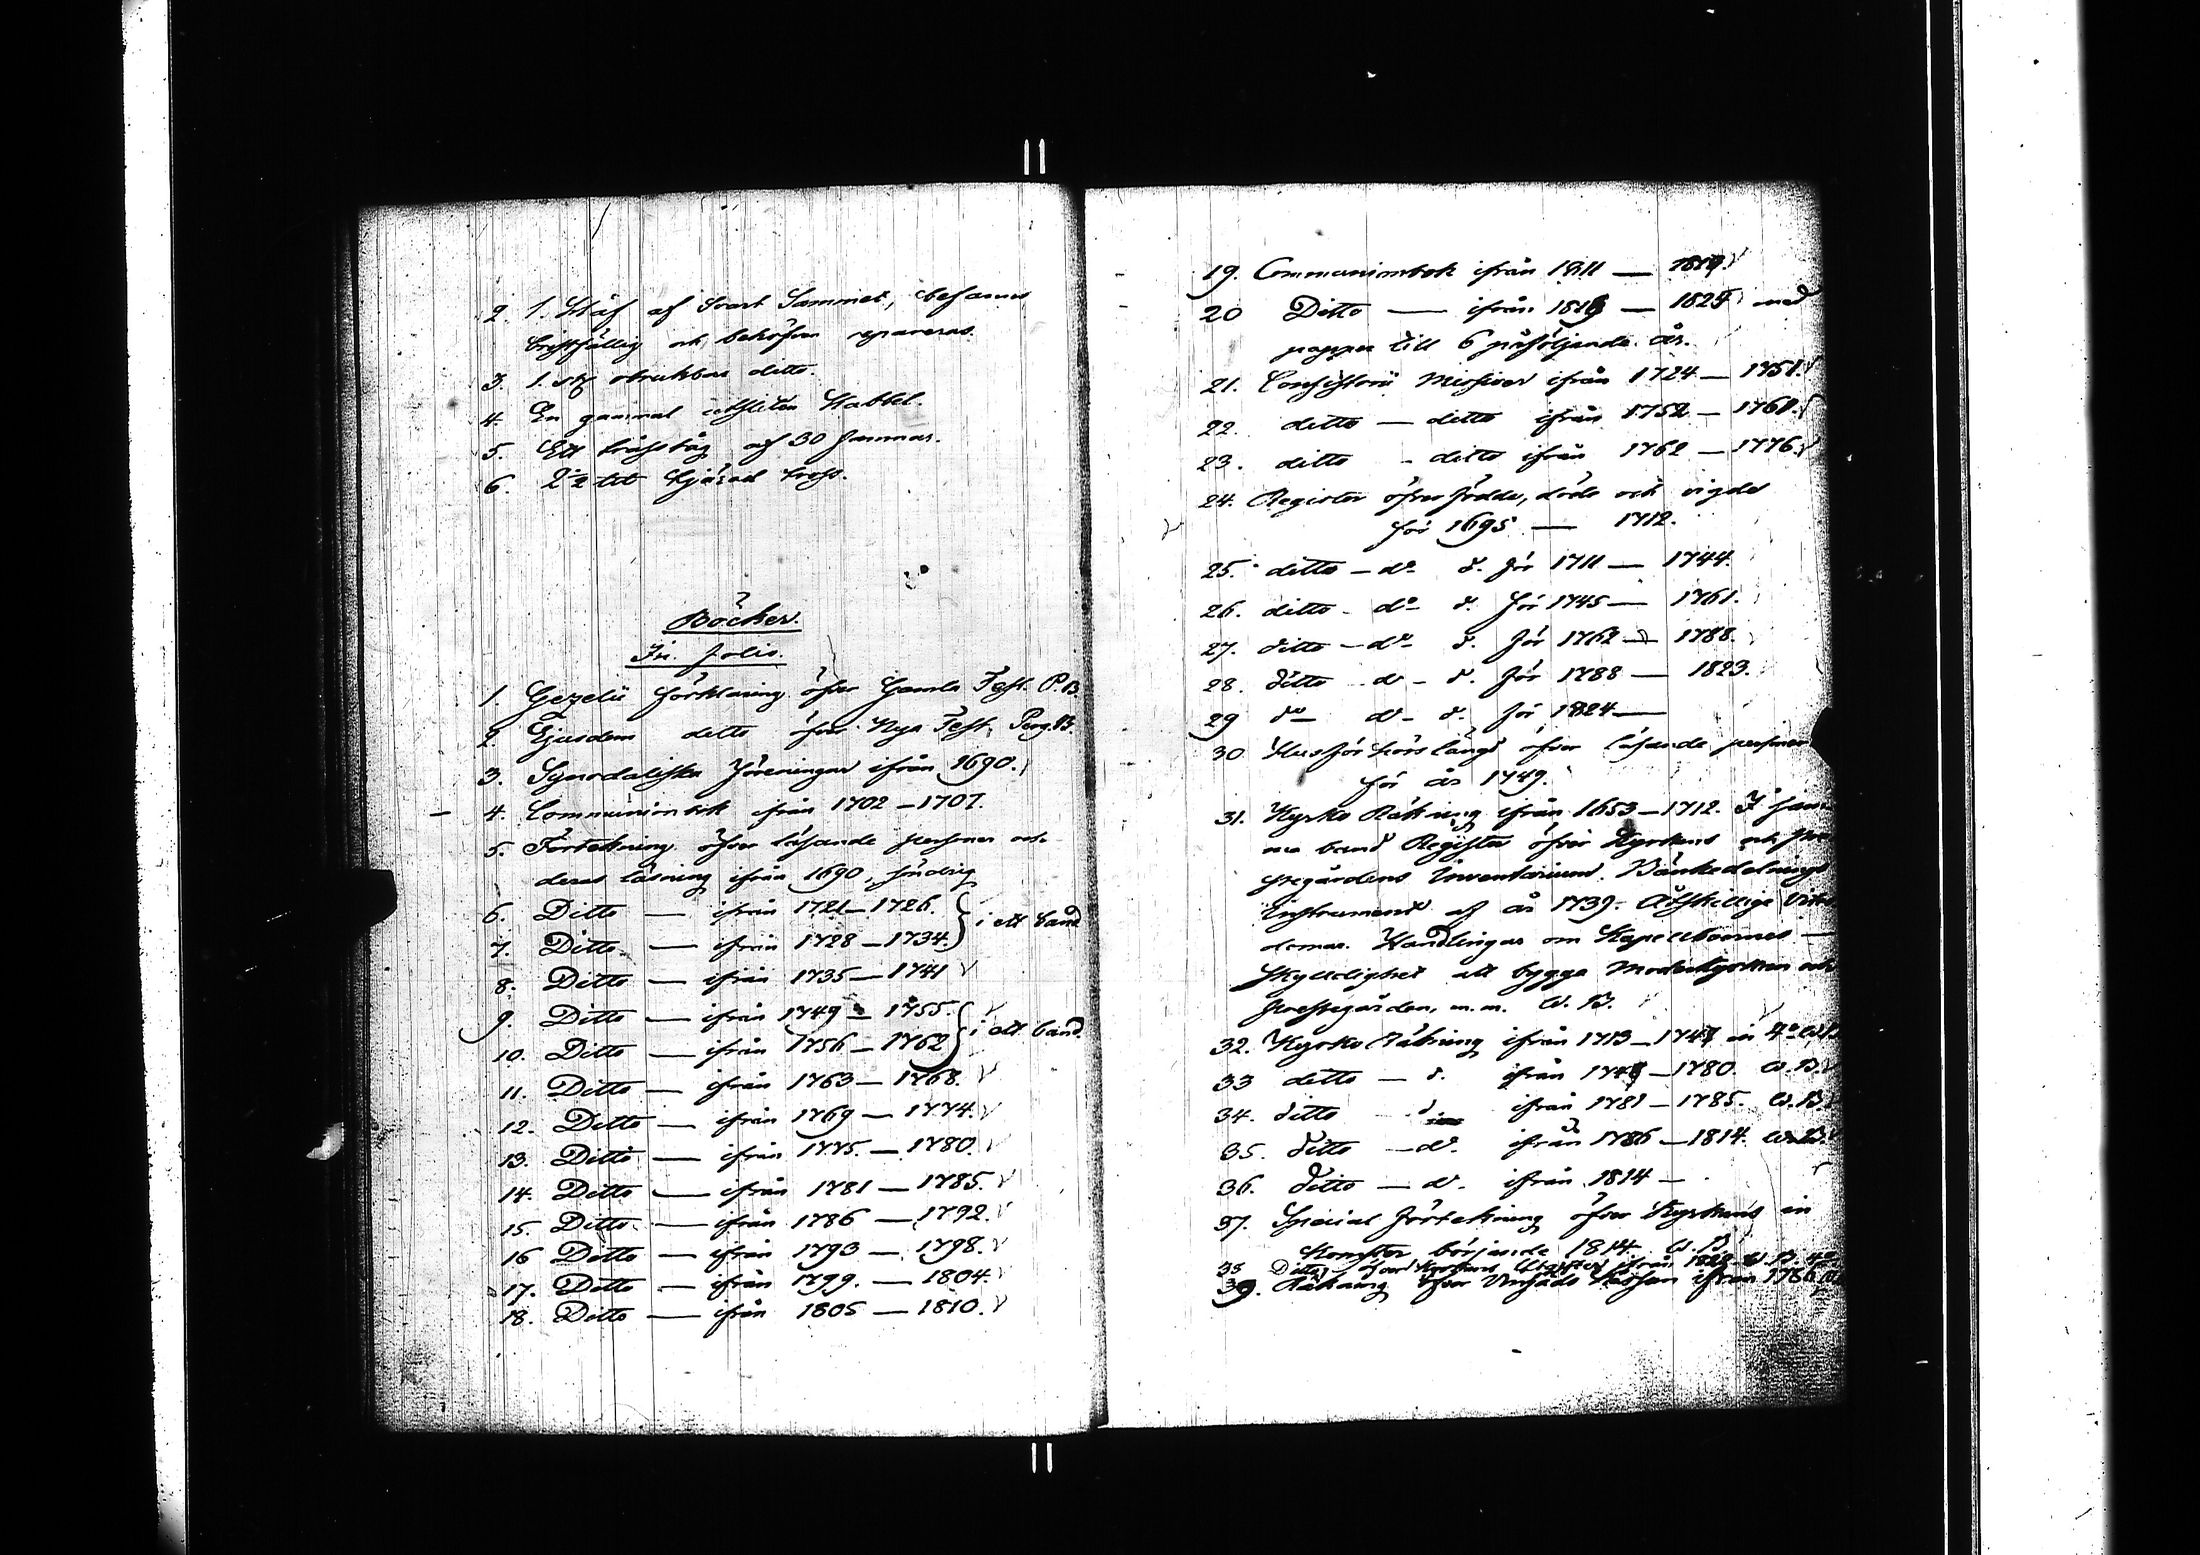 2. 1. Håf af svart Sammet, befannes
bristfällig och behöfver repareras.
3. 1. st obrukbar ditto.
4. En gammal utsliten Kabbel.
5. Ett tråsståg af 30 famnar.
6. 2½ tt tjärad tross.
Böcher.
In folio.
1. Gezelii förklaring öfver Gamla Test. P.B.
2. Ejusdem ditto öfver Nya Test. Perg.B.
3. Synodaliska föreningar ifrån 1690.
4. Communionbok ifrån 1702 – 1707.
5. Förtekning öfver läsande personer och
deras läsning ifrån 1690, söndrig
6. Ditto — ifrån 1721 – 1726. } i ett band
7. Ditto — ifrån 1728 – 1734.
8. Ditto — ifrån 1735 – 1741
9. Ditto — ifrån 1749 – 1755. } i ett band
10. Ditto — ifrån 1756 – 1762
11. Ditto — ifrån 1763 – 1768.
12. Ditto — ifrån 1769 – 1774.
13. Ditto — ifrån 1775. – 1780.
14. Ditto — ifrån 1781 – 1785.
15. Ditto — ifrån 1786 – 1792.
16 Ditto — ifrån 1793 – 1798.
17. Ditto — ifrån 1799. – 1804.
18. Ditto — ifrån 1805 – 1810.
19. Communionbok ifrån 1811 — 1819.
20 Ditto — ifrån 1819 — 1825 med
papper till 6 påföljande år.
21. Consistorii Missiver ifrån 1724 – 1751.
22. ditto – ditto ifrån 1752 – 1761.
23. ditto – ditto ifrån 1762 – 1776.
24. Register öfver födde, döde och vigde
för 1695 — 1712.
25. ditto – do d. för 1711 — 1744.
26. ditto – do d. för 1745 — 1761.
27. ditto – do d. för 1762 — 1788.
28. ditto do – d. för 1788 — 1823.
29 do do – d. för 1824 —
30 Husförhörslängd öfver läsande personer
för år 1749.
31. Kyrko Räkning ifrån 1653 – 1712. I sam
ma band Register öfver Kyrkans och Pre
stegårdens Inventarium. Bänkedelnings
Instrument af år 1739. Åtskillige
domar. Handlingar om Kapellboernes
skyldighet att bygga Moderkyrkan och
prestegården, m.m. W. B.
32. Kyrko Räkning ifrån 1713 – 1747 in 4o W.B.
33 ditto – d. ifrån 1748 – 1780. W. B.
34. ditto d ifrån 1781 – 1785. W. B.
35. ditto – do. ifrån 1786 – 1814. W. B.
36. ditto – do. ifrån 1814 –
37. Special förtekning öfver Kyrkans in
komster börjande 1814. W. B.
38 Ditto öfver Kyrkans Utgifter ifrån 1822 W. B. 4o
39. Räkning öfver Kassan ifrån 1786